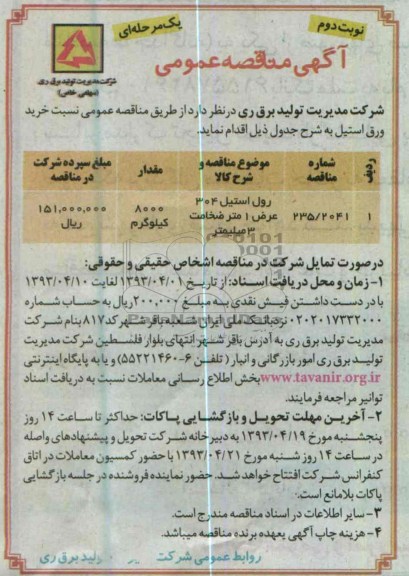 نوبت دوم
یک مرحله‌ای
آگهی مناقصه عمومی
شرکت مدیریت تولید برق ری
(سهامی خاص)
شرکت مدیریت تولید برق ری در نظر دارد از طریق مناقصه عمومی نسبت خرید
ورق استیل به شرح جدول ذیل اقدام نماید.
ردیف
شماره مناقصه
موضوع مناقصه و شرح کالا
مقدار
مبلغ سپرده شرکت در مناقصه
۱
۲۳۵/۲۰۴۱
رول استیل ۳۰۴ عرض ۱ متر ضخامت ۳ میلیمتر
۸۰۰۰ کیلوگرم
۱۵۱,۰۰۰,۰۰۰ ریال
درصورت تمایل شرکت در مناقصه اشخاص حقیقی و حقوقی:
۱- زمان و محل دریافت اسناد: از تاریخ ۱۳۹۳/۰۴/۰۱ لغایت ۱۳۹۳/۰۴/۱۰
با در دست داشتن فیش نقدی به مبلغ ۲۰۰,۰۰۰ ریال به حساب شماره
۰۲۰۲۰۱۷۳۳۲۰۰۰ نزد بانک ملی ایران شعبه باقرشهر کد ۸۱۷ بنام شرکت
مدیریت تولید برق ری به آدرس باقرشهر انتهای بلوار فلسطین شرکت مدیریت
تولید برق ری امور بازرگانی و انبار ( تلفن ۶-۵۵۲۲۱۴۶۰) و یا به پایگاه اینترنتی
www.tavanir.org.ir بخش اطلاع رسانی معاملات نسبت به دریافت اسناد
توانیر مراجعه فرمایند.
۲- آخرین مهلت تحویل و بازگشایی پاکات: حداکثر تا ساعت ۱۴ روز
پنجشنبه مورخ ۱۳۹۳/۰۴/۱۹ به دبیرخانه شرکت تحویل و پیشنهادهای واصله
در ساعت ۱۴ روز شنبه مورخ ۱۳۹۳/۰۴/۲۱ با حضور کمسیون معاملات در اتاق
کنفرانس شرکت افتتاح خواهد شد. حضور نماینده فروشنده در جلسه بازگشایی
پاکات بلامانع است.
۳- سایر اطلاعات در اسناد مناقصه مندرج است.
۴- هزینه چاپ آگهی بعهده برنده مناقصه میباشد.
روابط عمومی شرکت تولید برق ری